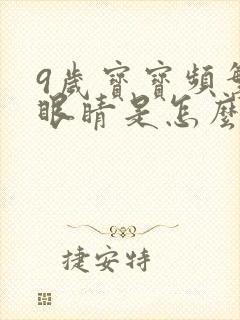 9歲寶寶頻繁
眼睛是怎麼
捷安特